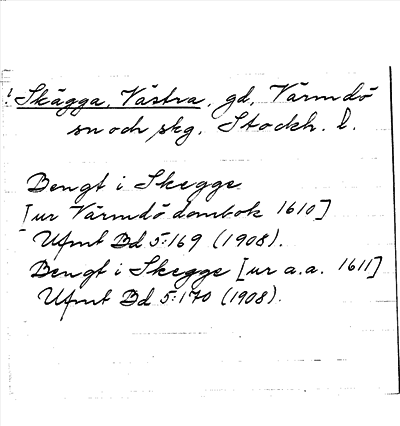 Skägga, Västra, gd, Värmdö
sn och skg, Stockh. l.
Bengt i Skegge
[ur Värmdö dombok 1610]
Ufmt Bd 5:169 (1908).
Bengt i Skegge [ur a.a. 1611]
Ufmt Bd 5:170 (1908).